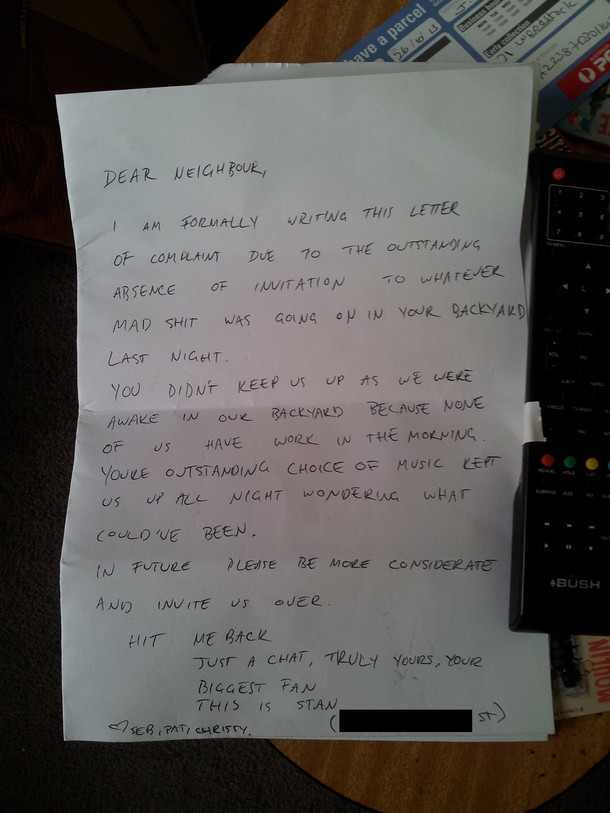 DEAR NEIGHBOUR,
I AM FORMALLY WRITING THIS LETTER
OF COMPLAINT DUE TO THE OUTSTANDING
ABSENCE OF INVITATION TO WHATEVER
MAD SHIT WAS GOING ON IN YOUR BACKYARD
LAST NIGHT.
YOU DIDN'T KEEP US UP AS WE WERE
AWAKE IN OUR BACKYARD BECAUSE NONE
OF US HAVE WORK IN THE MORNING.
YOURE OUTSTANDING CHOICE OF MUSIC KEPT
US UP ALL NIGHT WONDERING WHAT
COULD'VE BEEN.
IN FUTURE PLEASE BE MORE CONSIDERATE
AND INVITE US OVER.
HIT ME BACK
JUST A CHAT, TRULY YOURS, YOUR
BIGGEST FAN
THIS IS STAN
♡ SEB, PAT, CHRISTY. ( ST)
have a parcel
26/10/13
Early collection
BUSH
REVEAL HOLD
SUBPAGE SIZE